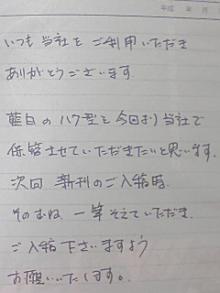 平成 年 月
いつも当社をご利用いただき
ありがとうございます
藍白のハク型を今回より当社で
保管させていただきたいと思います。
次回 新刊のご入稿時
そのむね 一筆そえていただき
ご入稿下さいますよう
お願いいたします。